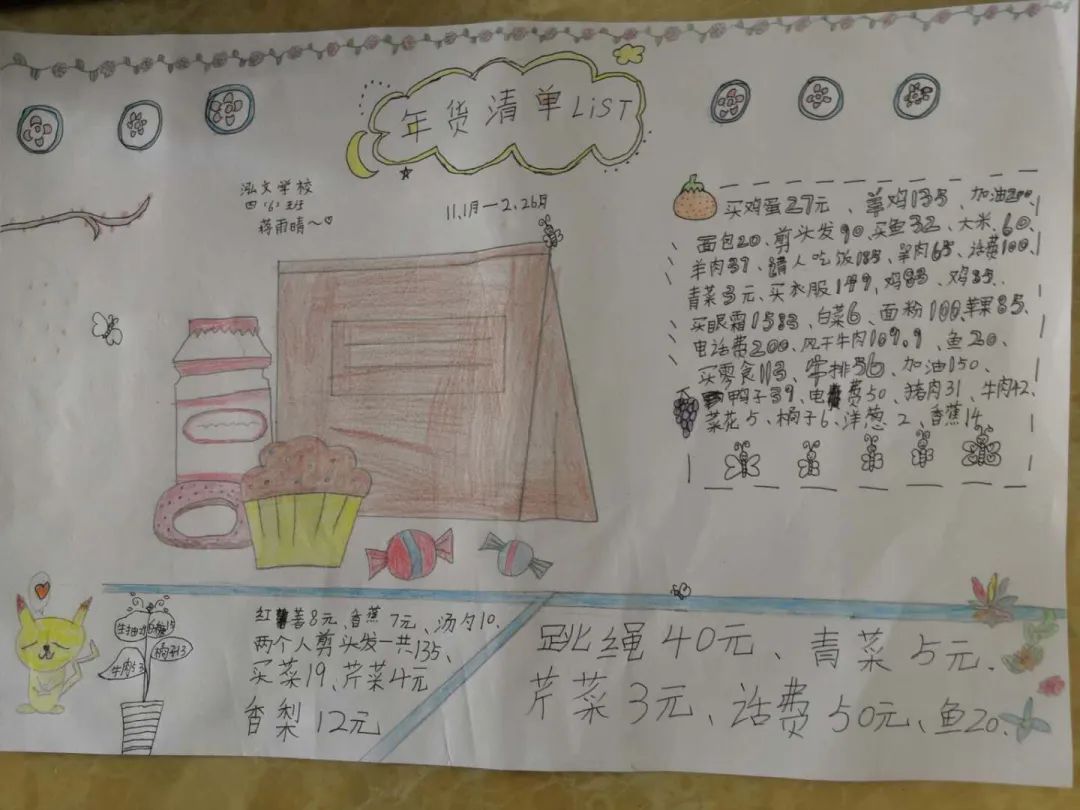 年货清单LiST
泓文学校
四、(6)班
蒋雨晴~
11.1月—2.26月
买鸡蛋27元、羊鸡135、加油200、
面包20、剪头发90、买鱼32、大米、60、
羊肉39、请人吃饭185、羊肉65、话费100、
青菜3元、买衣服199、鸡83、鸡35、
买眼霜1583、白菜6、面粉100、苹果85、
电话费200、风干牛肉109.9、鱼20、
买零食113、牛排56、加油150、
鸭子39、电费50、猪肉31、牛肉42、
菜花5、桶子6、洋葱2、香蕉14
生抽
桶子13
牛肉
红薯8元、香蕉7元、汤勺10、
两个人剪头发一共135、
买菜19、芹菜4元
香梨12元
跳绳40元、青菜5元、
芹菜3元、话费50元、鱼20、